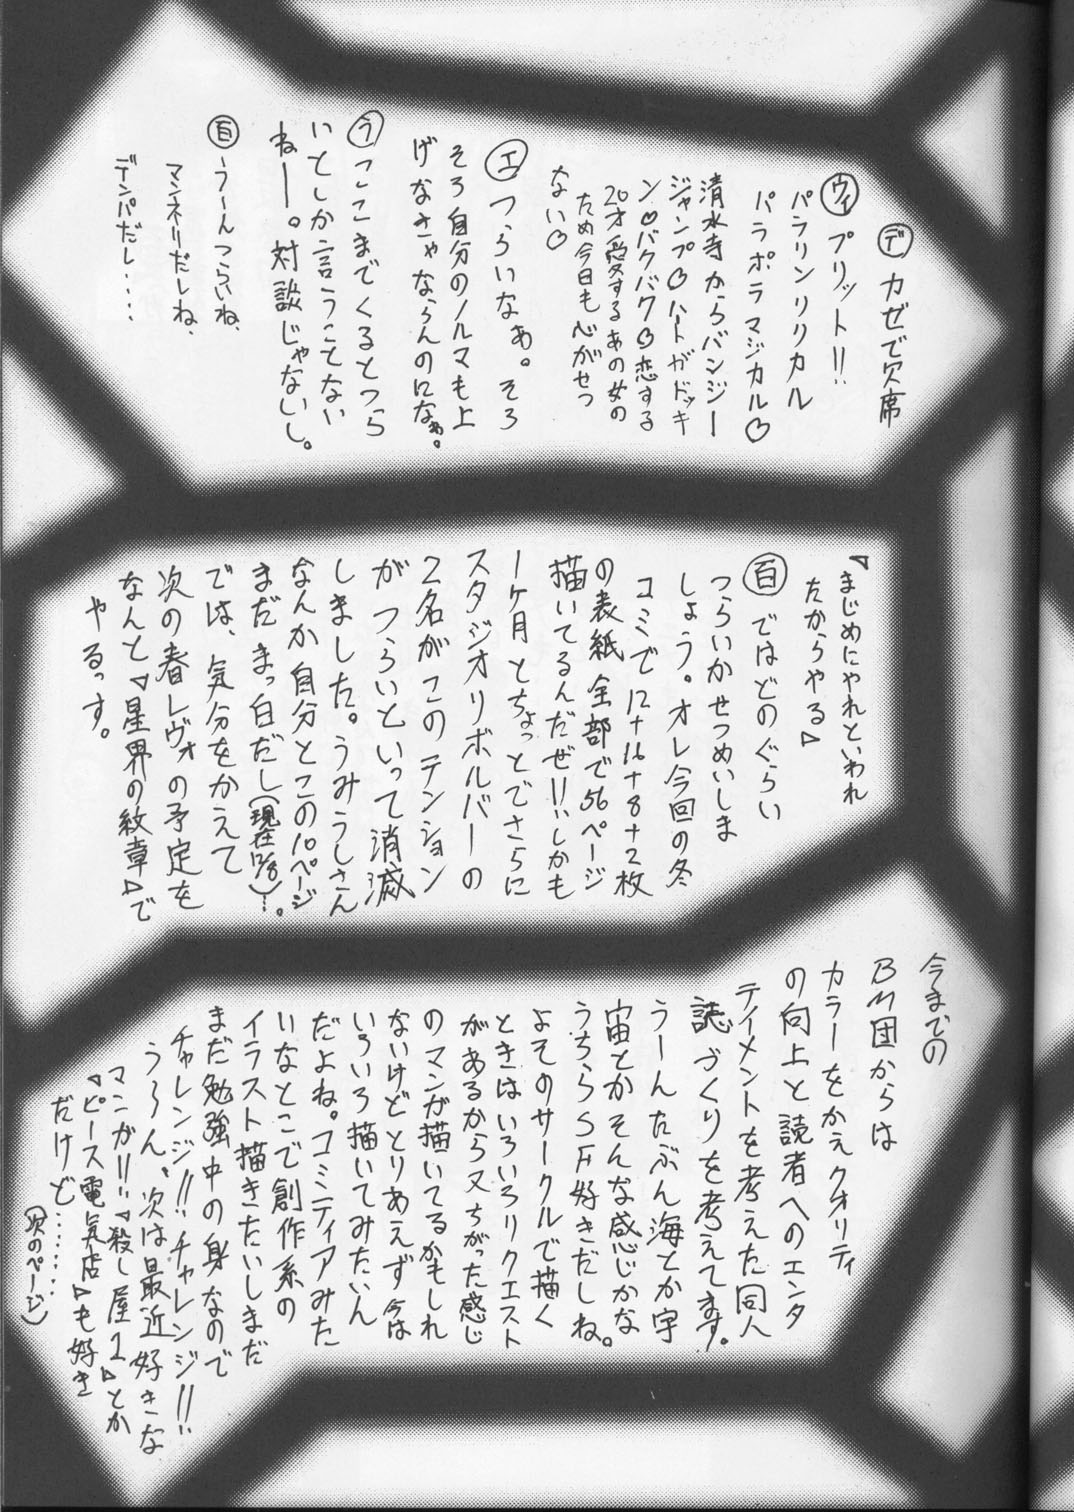 デ カゼで欠席
ウィ プリット!!
パラリンリリカル
パラポラマジカル♡
清水寺からバンジー
ジャンプ♡ハートがドッキ
ン♡バクバク♡恋する
20才愛するあの女の
ため今日も心がせつ
ない♡
エ つらいなぁ。そろ
そろ自分のノルマも上
げなきゃならんのになぁ。
う ここまでくるとつら
いとしか言うことない
ねー。対談じゃないし。
百 うーんつらいね、
マンネリだしね、
デンパだし・・・・
「まじめにやれといわれ
たからやる」
百 ではどのぐらい
つらいかせつめいしま
しょう。オレ今回の冬
コミで12+16+8+2枚
の表紙全部で56ページ
描いてるんだぜ!!しかも
1ヶ月とちょっとでさらに
スタジオリボルバーの
2名がこのテンション
がつらいといって消滅
しました。うみうしさん
なんか自分とこの10ページ
まだまっ白だし(現在12/8)…。
では、気分をかえて
次の春レヴォの予定を
なんと「星界の紋章」で
やるっす。
今までの
BM団からは
カラーをかえクオリティ
の向上と読者へのエンタ
ティメントを考えた同人
誌づくりを考えてます。
うーんたぶん海とか宇
宙とかそんな感じかな。
うちらSF好きだしね。
よそのサークルで描く
ときはいろいろリクエスト
があるから又ちがった感じ
のマンガ描いてるかもしれ
ないけどとりあえず今は
いろいろ描いてみたいん
だよね。コミティアみた
いなとこで創作系の
イラスト描きたいしまだ
まだ勉強中の身なので
チャレンジ!!チャレンジ!!
う〜ん、次は最近好きな
マンガ!!「殺し屋1」とか
「ピース電気店」も好き
だけど・・・・・・
(次のページ)